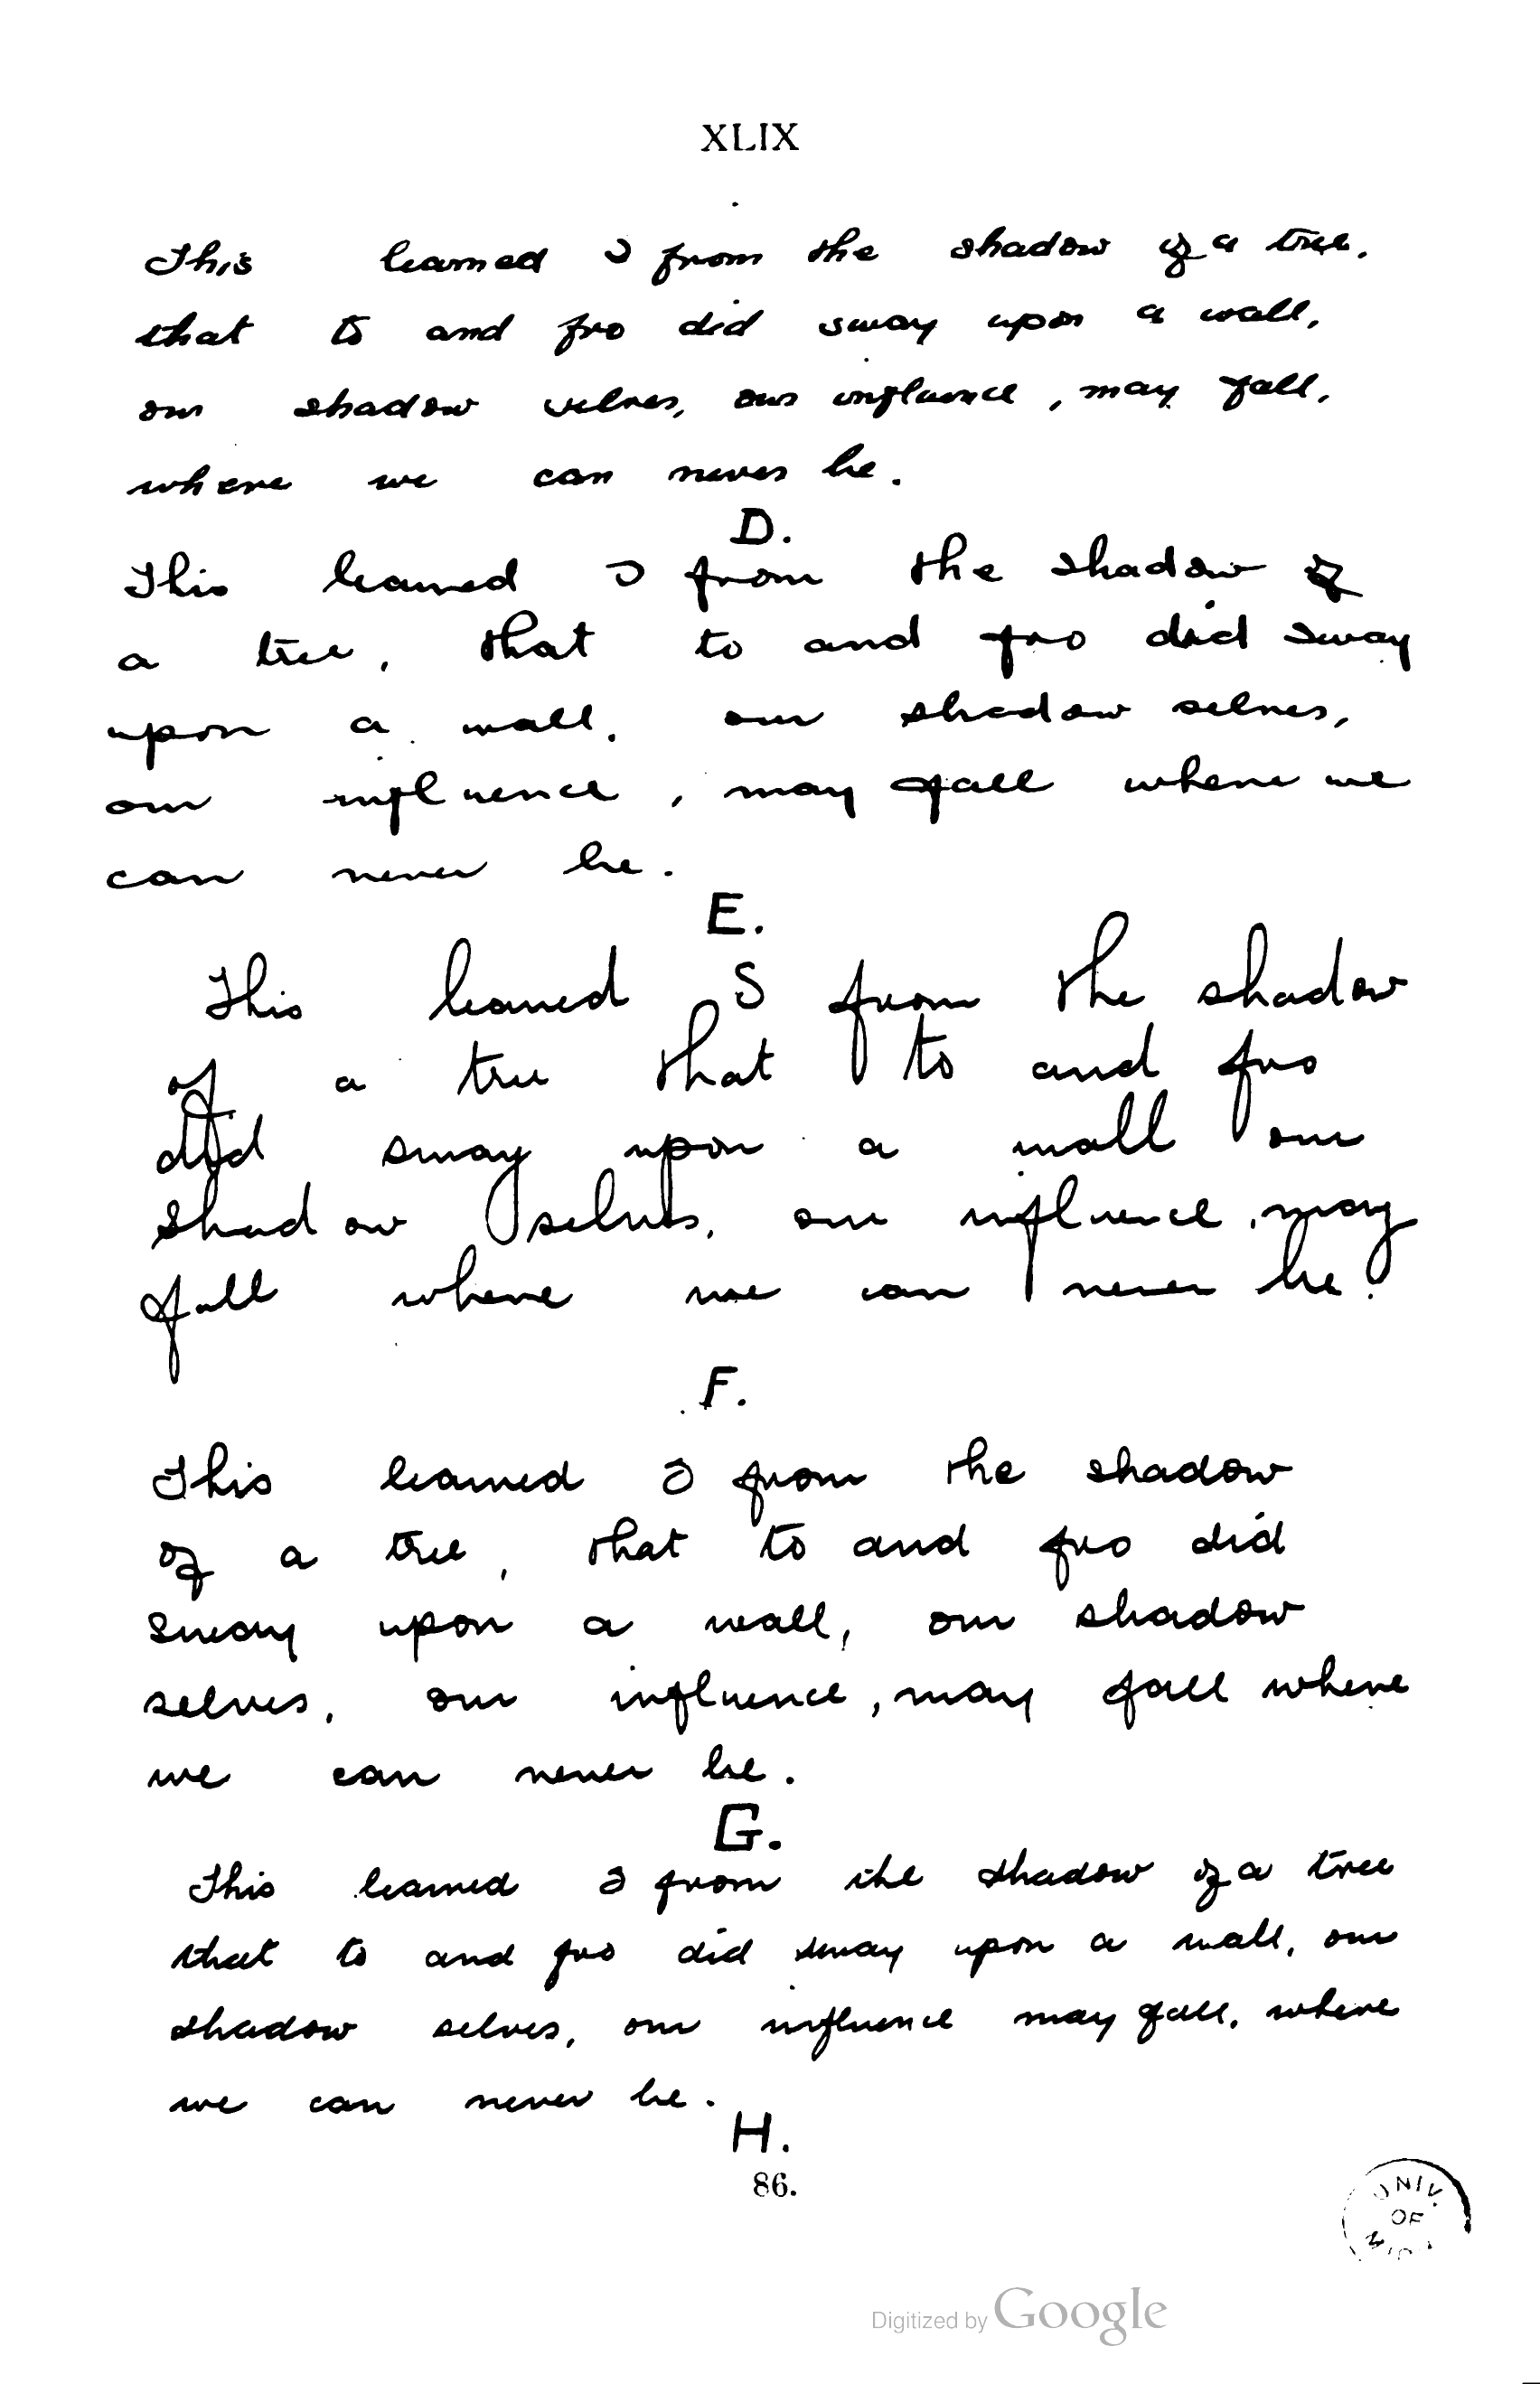 XLIX
This learned I from the shadow of a tree,
that to and fro did sway upon a wall,
our shadow selves, our influence, may fall,
where we can never be.
D.
This learned I from the shadow of
a tree, that to and fro did sway
upon a wall, our shadow selves,
our influence, may fall where we
can never be.
E.
This learned I from the shadow
of a tree that to and fro
did sway upon a wall our
shadow selves, our influence, may
fall where we can never be.
F.
This learned I from the shadow
of a tree, that to and fro did
sway upon a wall, our shadow
selves, our influence, may fall where
we can never be.
G.
This learned I from the shadow of a tree
that to and fro did sway upon a wall, our
shadow selves, our influence may fall, where
we can never be.
H.
86.
UNIV.
OF
Digitized by Google